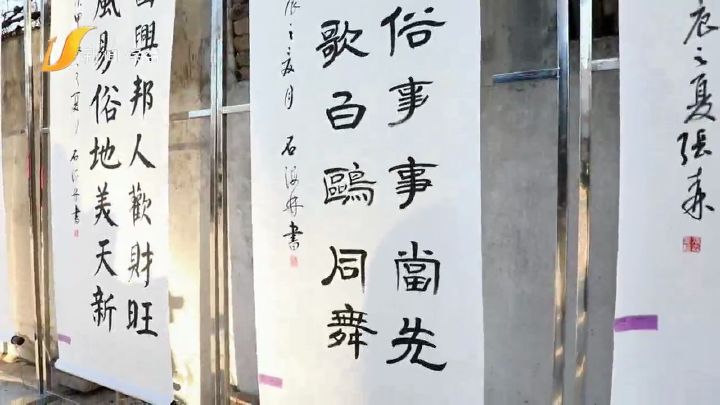 辰之夏張森
俗事事當先
歌百鷗同舞
辰之夏月 石海書
興邦人歡財旺
風易俗地美天新
之夏月 石海書